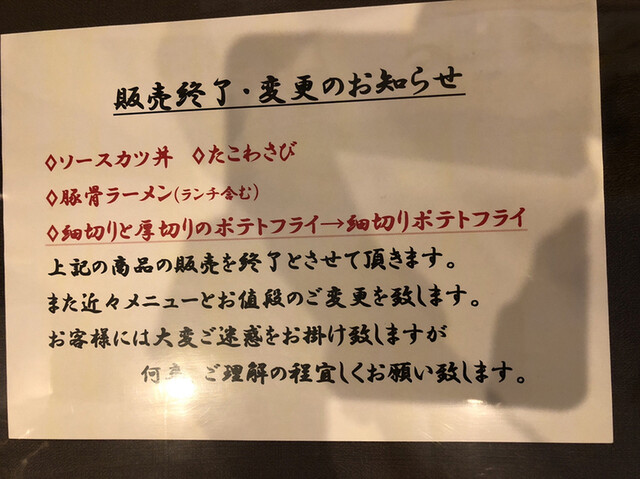 販売終了・変更のお知らせ
◇ソースカツ丼 ◇たこわさび
◇豚骨ラーメン(ランチ含む)
◇細切りと厚切りのポテトフライ→細切りポテトフライ
上記の商品の販売を終了とさせて頂きます。
また近々メニューとお値段のご変更を致します。
お客様には大変ご迷惑をお掛け致しますが
何卒 ご理解の程宜しくお願い致します。